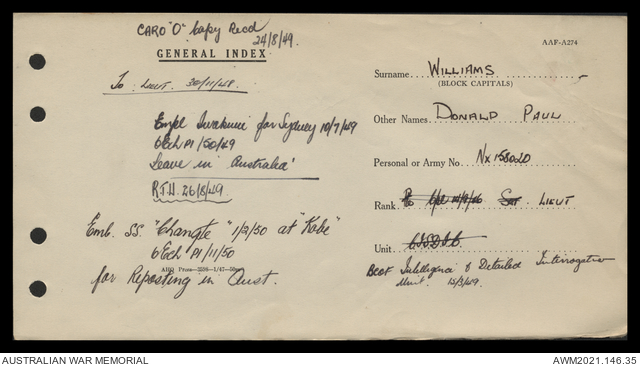 CARO "O" Copy Recd
24/8/49.
GENERAL INDEX
To Lieut. 30/11/48.
Empl Iwakuni for Sydney 10/7/49
6 Ech P1/50/49
Leave in Australia'
R.T.U. 26/8/49
Emb. SS. "Changte" 1/2/50 at "Kobe"
6 Ech P1/11/50
for Reposting in Aust.
AHQ Press—3598—1/47—50
AAF-A274
Surname WILLIAMS
(BLOCK CAPITALS)
Other Names DONALD PAUL
Personal or Army No. NX158020
Rank Cpl Sgt LIEUT
Unit C.S.D.I.C.
Bcof Intelligence & Detailed Interrogation
Unit. 15/3/49.
AUSTRALIAN WAR MEMORIAL
AWM2021.146.35